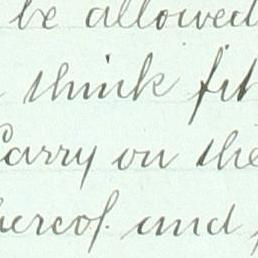 be allowed
think fit
Carry on the
hereof. and